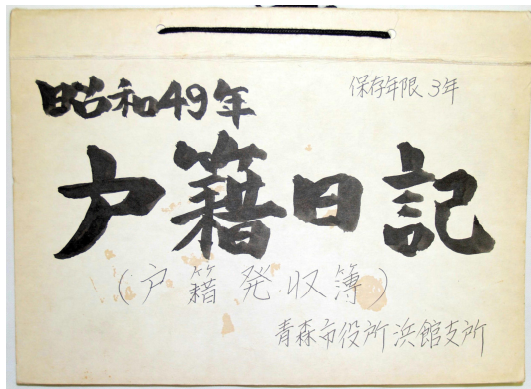 昭和49年
保存年限 3年
戸籍日記
(戸籍発収簿)
青森市役所浜館支所